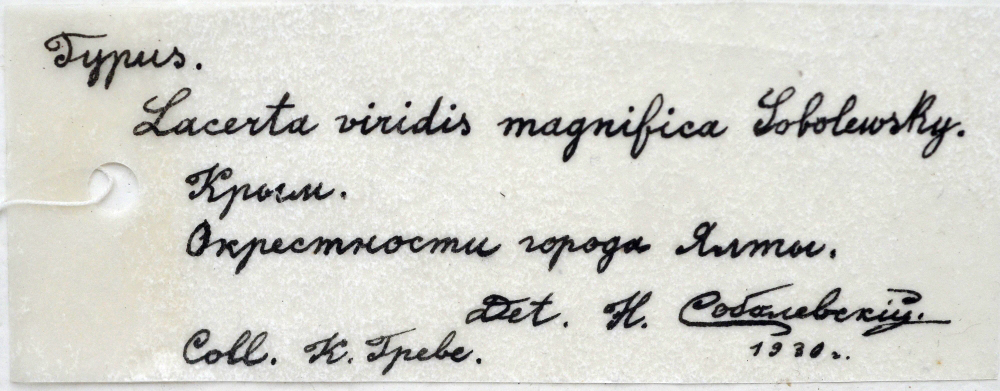 Typus.
Lacerta viridis magnifica Sobolewsky.
Крым.
Окрестности города Ялты.
Det. Н. Соболевскій.
Coll. К. Греве.
1930 г.